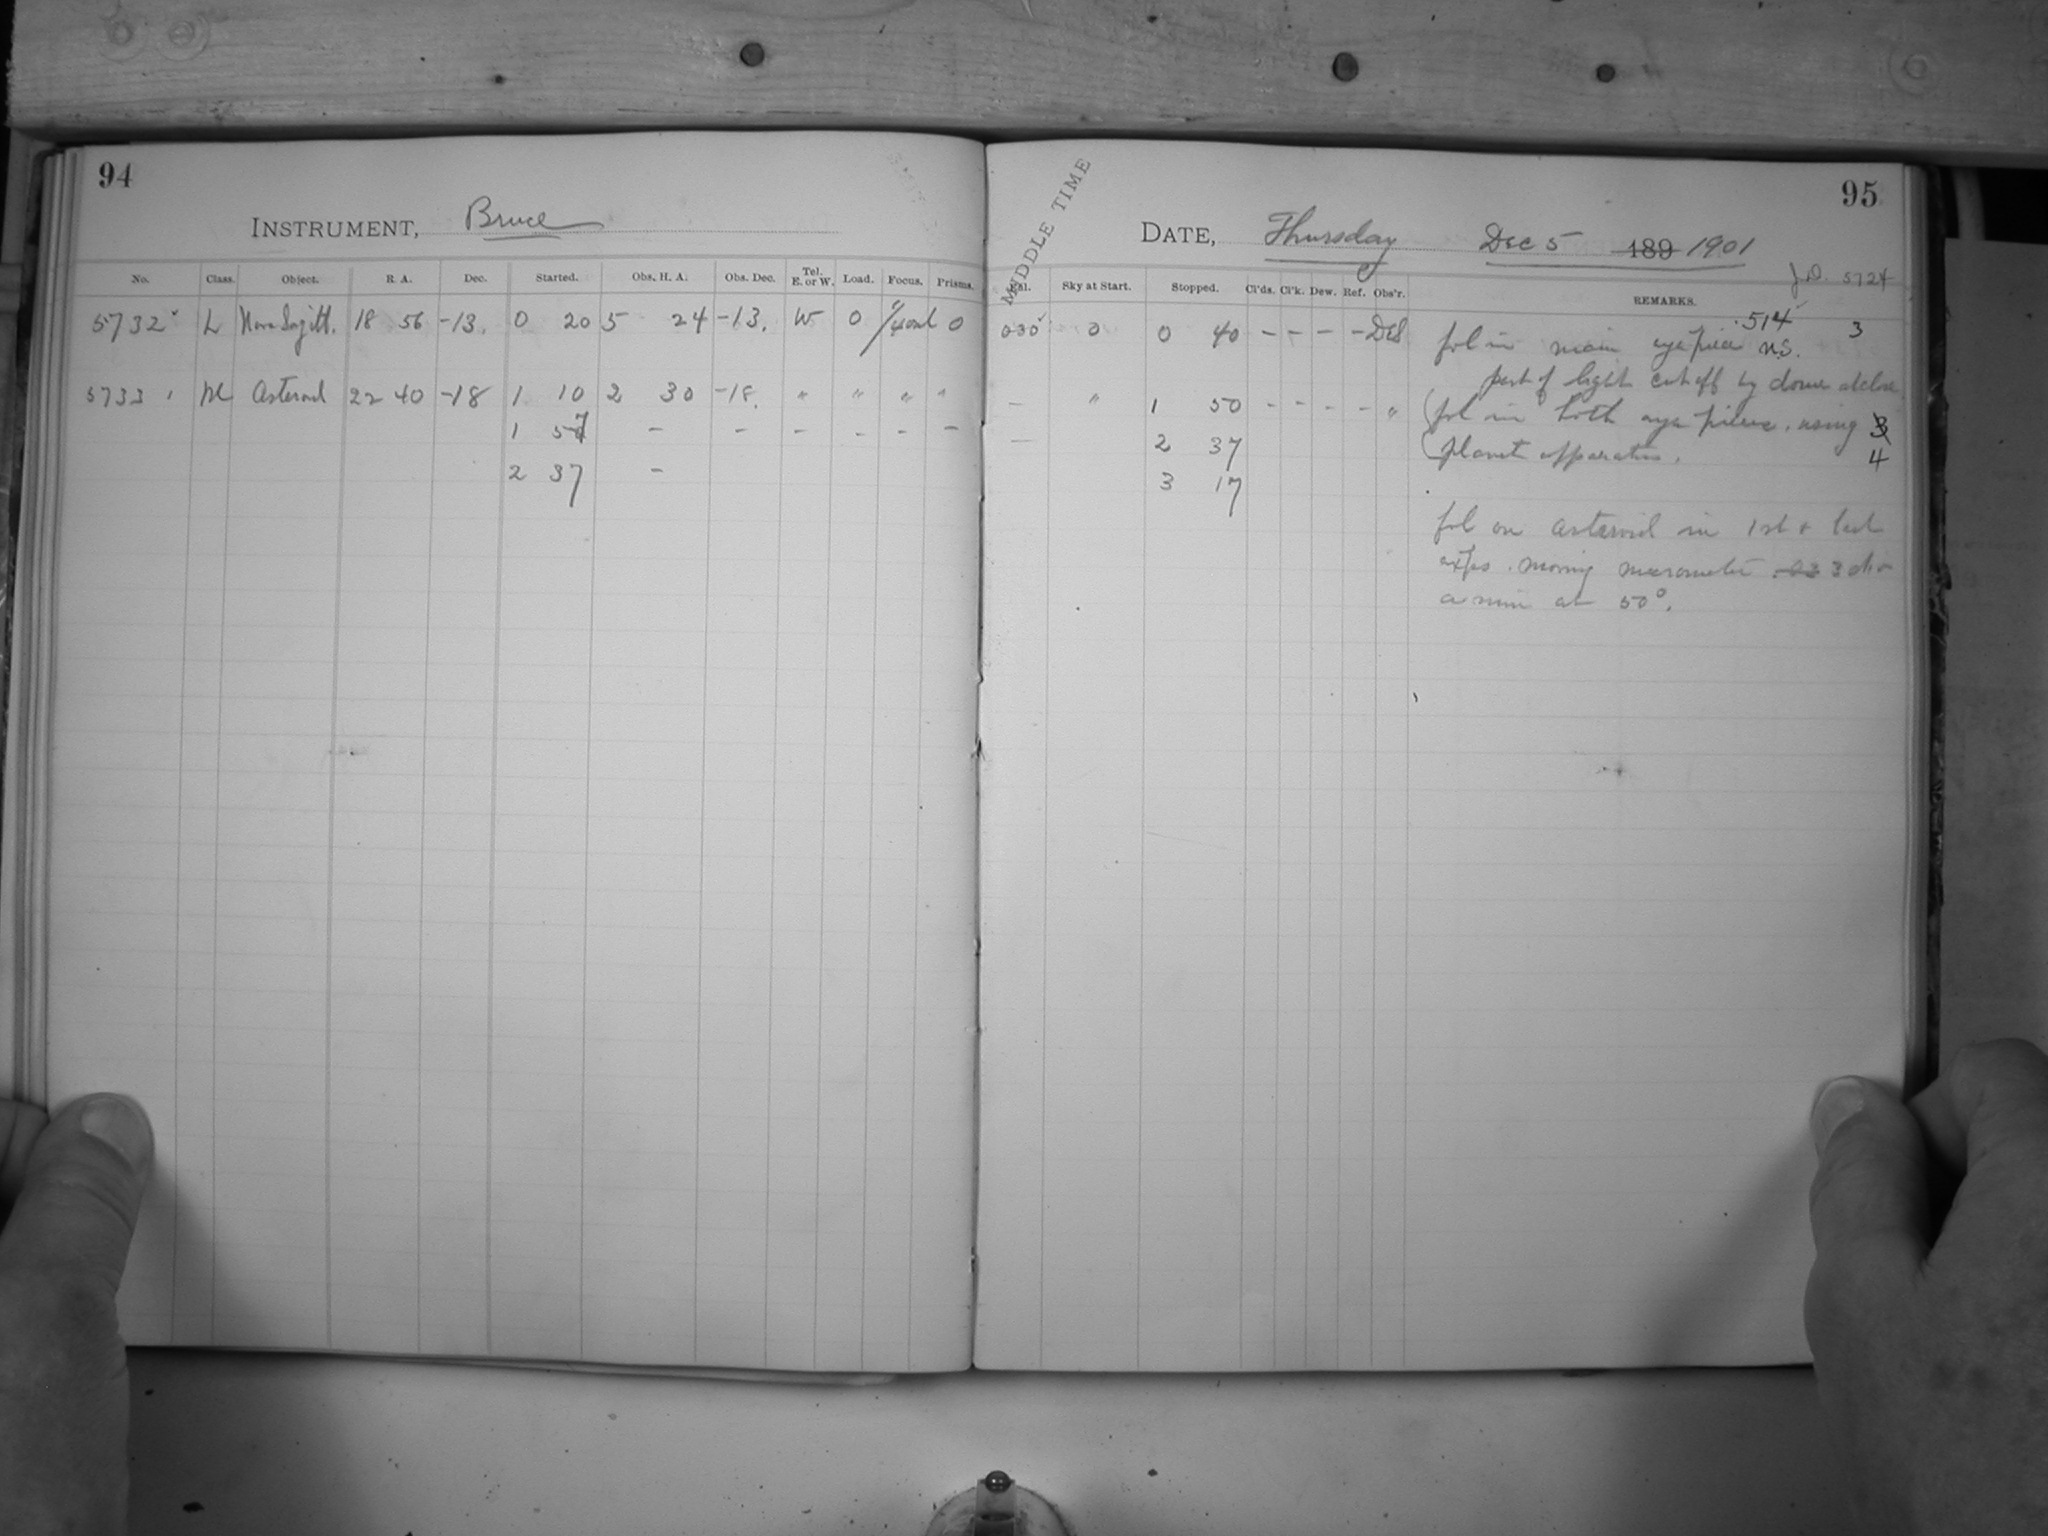 94
INSTRUMENT, Bruce
No. Class. Object. R. A. Dec. Started. Obs. H. A. Obs. Dec. Tel. E. or W. Load. Focus. Prisms.
5732 L Nova Sagitt. 18 56 -13. 0 20 5 24 -13. W 0 0
5733 M Asteroid 22 40 -18 1 10 2 30 -18. " " " "
1 57 - - - - - -
2 37 -
95
MIDDLE TIME
DATE, Thursday Dec 5 189 1901
J.D. 5724
Sky at Start. Stopped. Cl'ds. Cl'k. Dew. Ref. Obs'r. REMARKS.
030 0 0 40 - - - - fol in main eye piece N.S. .514 3
part of light cut off by dome at close
- " 1 50 - - - - " fol in both eye pieces, using 3
- 2 37 planet apparatus. 4
3 17
fol on asteroid in 1st + last
exps. moving micrometer 3 div
a min at 50°.